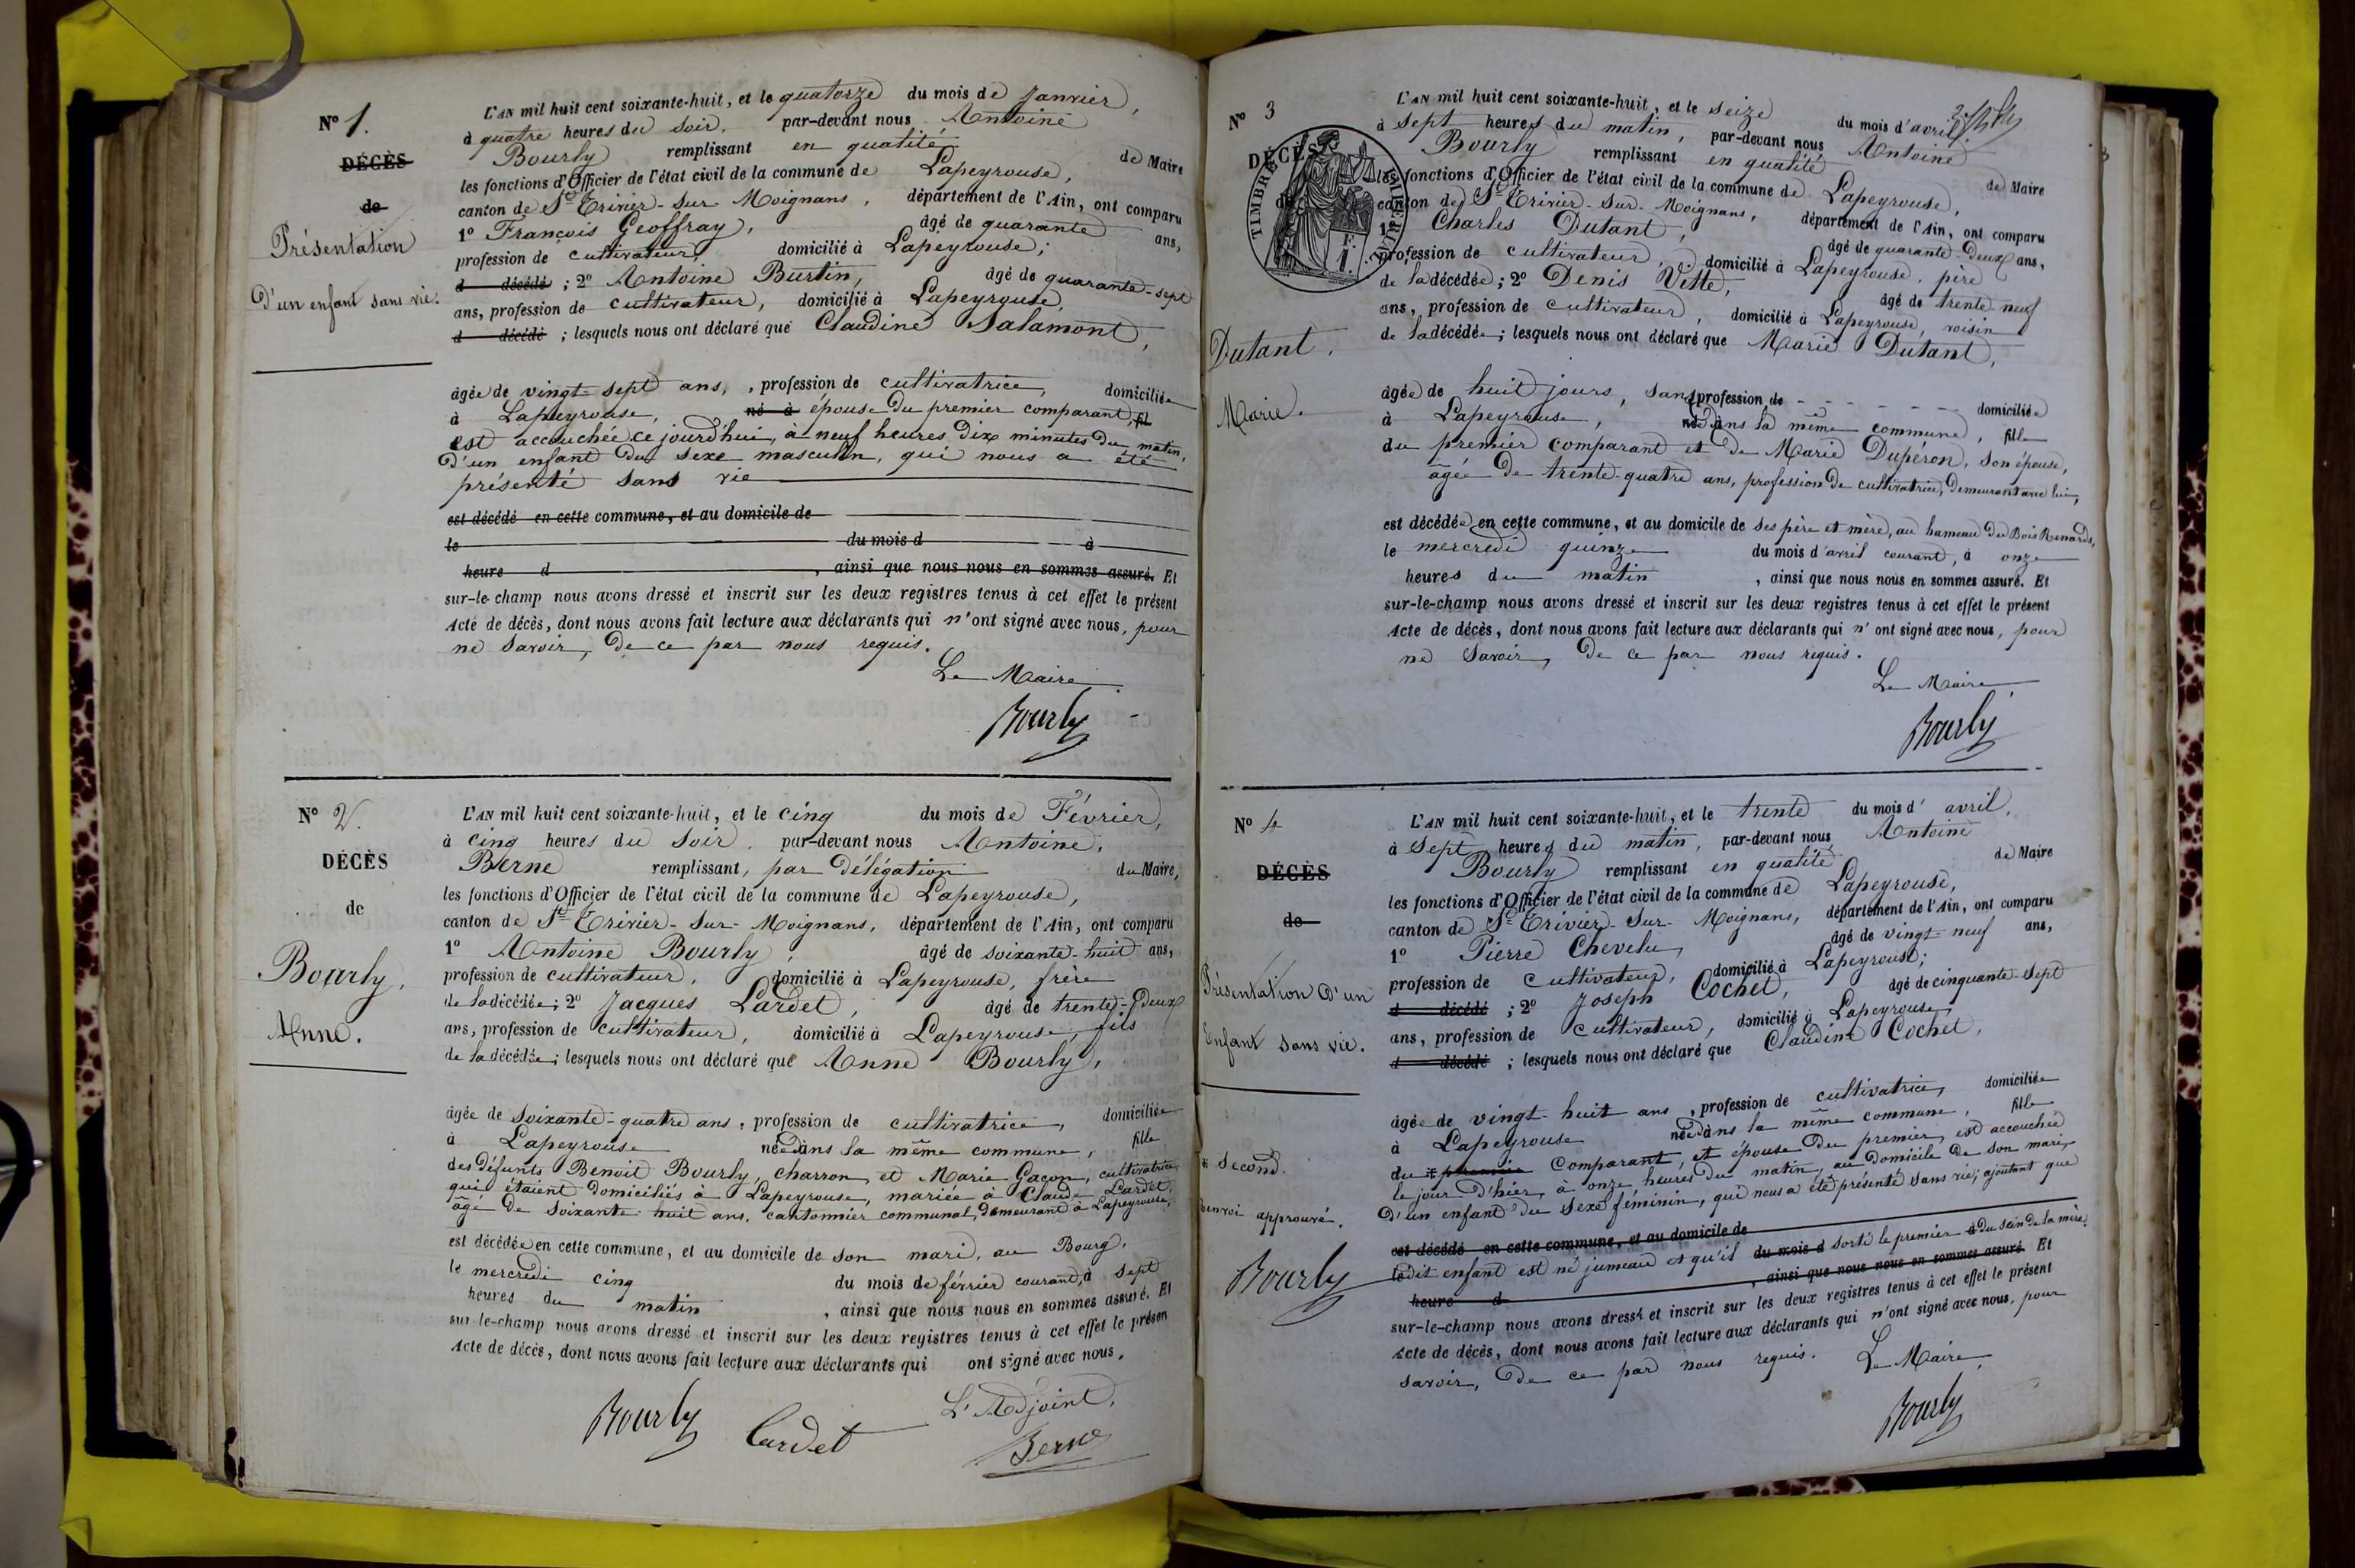 N° 1.
DÉCÈS
de
Présentation
D'un enfant sans vie.
L'AN mil huit cent soixante-huit, et le quatorze du mois de Janvier,
à quatre heures du soir, par-devant nous Antoine
Bourly remplissant en qualité de Maire
les fonctions d'Officier de l'état civil de la commune de Lapeyrouse,
canton de St Trivier-sur-Moignans, département de l'Ain, ont comparu
1° François Geoffray, âgé de quarante ans,
profession de cultivateur, domicilié à Lapeyrouse;
d décédé ; 2° Antoine Burtin, âgé de quarante-sept
ans, profession de cultivateur, domicilié à Lapeyrouse,
d décédé ; lesquels nous ont déclaré que Claudine Salamont,
âgée de vingt-sept ans, profession de cultivatrice, domiciliée
à Lapeyrouse, né à épouse du premier comparant, fil
est accouchée ce jourd'hui, à neuf heures dix minutes du matin,
d'un enfant du sexe masculin, qui nous a été
présenté sans vie
est décédé en cette commune, et au domicile de
le du mois d à
heure d , ainsi que nous nous en sommes assuré. Et
sur-le-champ nous avons dressé et inscrit sur les deux registres tenus à cet effet le présent
Acte de décès, dont nous avons fait lecture aux déclarants qui n'ont signé avec nous, pour
ne savoir, de ce par nous requis.
Le Maire
Bourly
N° 2.
DÉCÈS
de
Bourly,
Anne.
L'AN mil huit cent soixante-huit, et le cinq du mois de Février,
à cinq heures du soir, par-devant nous Antoine
Berne remplissant, par délégation du Maire,
les fonctions d'Officier de l'état civil de la commune de Lapeyrouse,
canton de St Trivier-sur-Moignans, département de l'Ain, ont comparu
1° Antoine Bourly, âgé de soixante-huit ans,
profession de cultivateur, domicilié à Lapeyrouse, frère
de la décédée; 2° Jacques Lardet, âgé de trente-deux
ans, profession de cultivateur, domicilié à Lapeyrouse, fils
de la décédée; lesquels nous ont déclaré que Anne Bourly,
âgée de soixante-quatre ans, profession de cultivatrice, domiciliée
à Lapeyrouse née dans la même commune, fille
des défunts Benoit Bourly, charron, et Marie Gacon, cultivatrice
qui étaient domiciliés à Lapeyrouse, mariée à Claude Lardet,
âgé de soixante-huit ans, cantonnier communal, demeurant à Lapeyrouse,
est décédée en cette commune, et au domicile de son mari, au Bourg,
le mercredi cinq du mois de février courant, à sept
heures du matin , ainsi que nous nous en sommes assuré. Et
sur-le-champ nous avons dressé et inscrit sur les deux registres tenus à cet effet le présen
Acte de décès, dont nous avons fait lecture aux déclarants qui ont signé avec nous,
L'Adjoint,
Bourly Lardet Berne
N° 3
DÉCÈS
TIMBRE
Dutant,
Marie.
L'AN mil huit cent soixante-huit, et le seize du mois d'avril,
à sept heures du matin, par-devant nous Antoine
Bourly remplissant en qualité de Maire
les fonctions d'Officier de l'état civil de la commune de Lapeyrouse,
canton de St Trivier-sur-Moignans, département de l'Ain, ont comparu
1° Charles Dutant, âgé de quarante-deux ans,
profession de cultivateur, domicilié à Lapeyrouse, père
de la décédée; 2° Denis Vitte, âgé de trente-neuf
ans, profession de cultivateur, domicilié à Lapeyrouse, voisin
de la décédée; lesquels nous ont déclaré que Marie Dutant,
âgée de huit jours, sans profession de domiciliée
à Lapeyrouse, née dans la même commune, fille
du premier comparant et de Marie Dupéron, son épouse,
âgée de trente-quatre ans, profession de cultivatrice, demeurant avec lui,
est décédée en cette commune, et au domicile de ses père et mère, au hameau du Bois Renards,
le mercredi quinze du mois d'avril courant, à onze
heures du matin , ainsi que nous nous en sommes assuré. Et
sur-le-champ nous avons dressé et inscrit sur les deux registres tenus à cet effet le présent
Acte de décès, dont nous avons fait lecture aux déclarants qui n'ont signé avec nous, pour
ne savoir, de ce par nous requis.
Le Maire,
Bourly
N° 4
DÉCÈS
de
Présentation d'un
Enfant sans vie.
second.
Renvoi approuvé.
Bourly
L'AN mil huit cent soixante-huit, et le trente du mois d'avril,
à sept heures du matin, par-devant nous Antoine
Bourly remplissant en qualité de Maire
les fonctions d'Officier de l'état civil de la commune de Lapeyrouse,
canton de St Trivier-sur-Moignans, département de l'Ain, ont comparu
1° Pierre Chevelu, âgé de vingt-neuf ans,
profession de cultivateur, domicilié à Lapeyrouse;
d décédé ; 2° Joseph Cochet, âgé de cinquante-sept
ans, profession de cultivateur, domicilié à Lapeyrouse,
d décédé ; lesquels nous ont déclaré que Claudine Cochet,
âgée de vingt-huit ans, profession de cultivatrice, domiciliée
à Lapeyrouse née dans la même commune, fille
du premier comparant, et épouse du premier, est accouchée
le jour d'hier, à onze heures du matin, au domicile de son mari,
d'un enfant du sexe féminin, qui nous a été présenté sans vie; ajoutant que
est décédé en cette commune, et au domicile de
ledit enfant est né jumeau et qu'il du mois d sorti le premier à du sein de la mère.
heure d , ainsi que nous nous en sommes assuré. Et
sur-le-champ nous avons dressé et inscrit sur les deux registres tenus à cet effet le présent
Acte de décès, dont nous avons fait lecture aux déclarants qui n'ont signé avec nous, pour
savoir, de ce par nous requis.
Le Maire,
Bourly